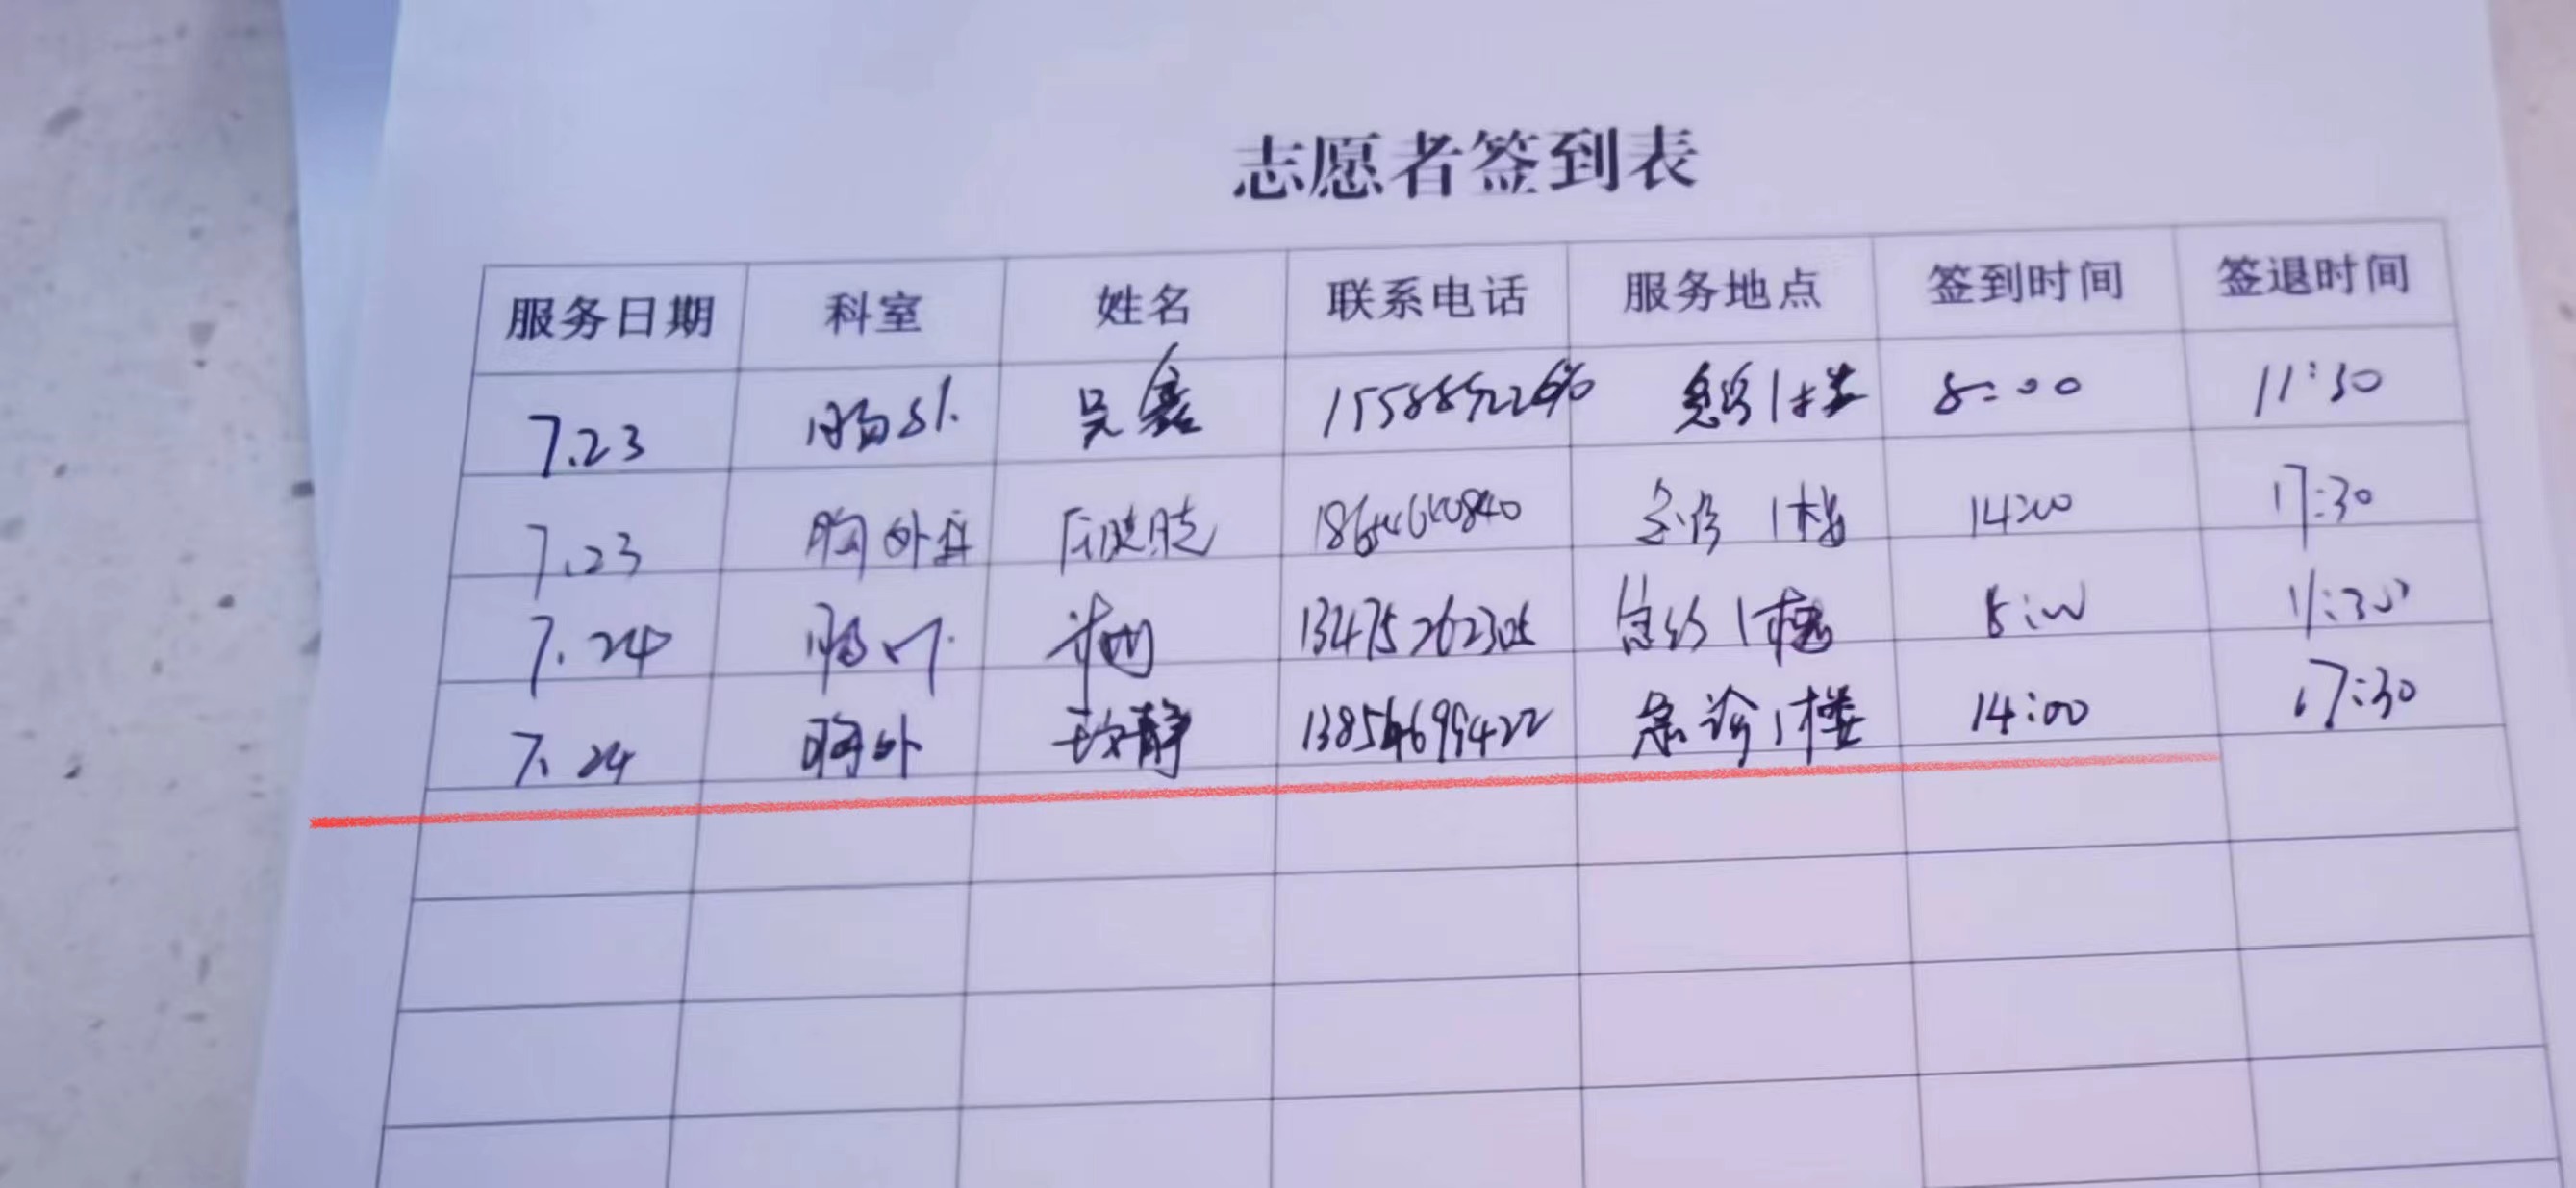 志愿者签到表
服务日期 科室 姓名 联系电话 服务地点 签到时间 签退时间
7.23 胸外 吴 急诊1楼 8:00 11:30
7.23 胸外 急诊 1楼 14:00 17:30
7.24 胸外 13475262305 急诊1楼 8:00 11:30
7.24 胸外 静 13854699422 急诊1楼 14:00 17:30